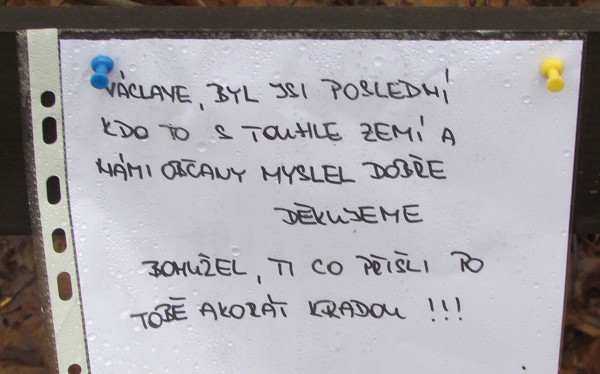 VÁCLAVE, BYL JSI POSLEDNÍ
KDO TO S TOUHLE ZEMÍ A
NÁMI OBČANY MYSLEL DOBŘE
DĚKUJEME
BOHUŽEL, TI CO PŘIŠLI PO
TOBĚ AKORÁT KRADOU !!!